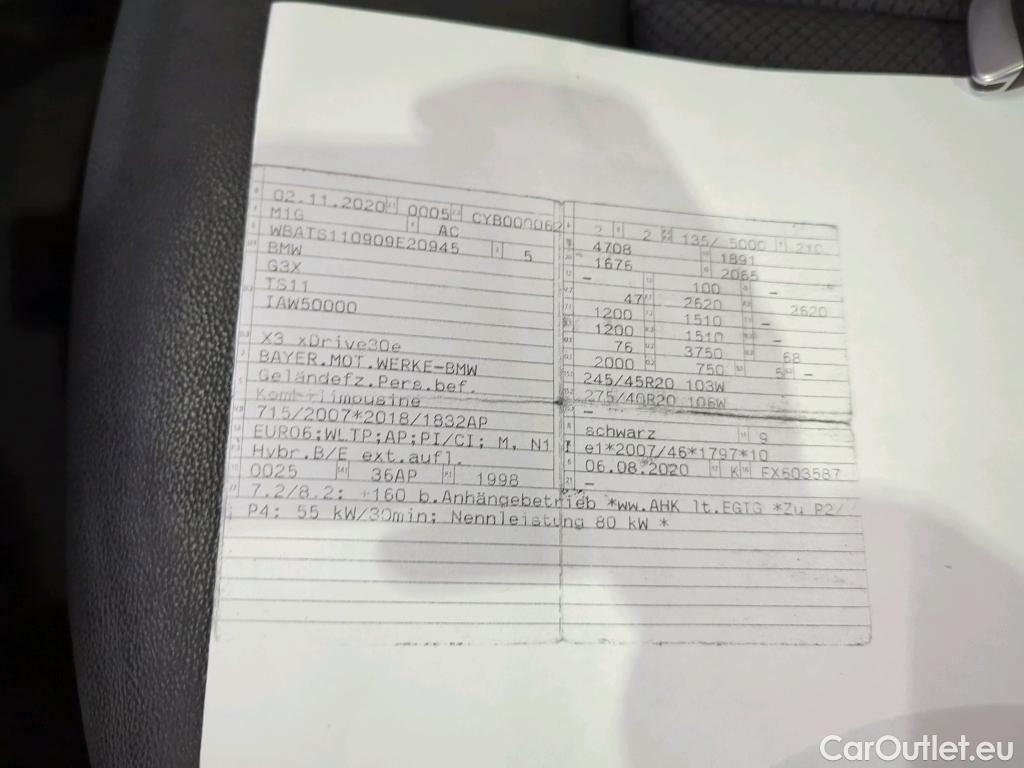 02.11.2020 0005 CYB000062
M1G AC
WBATS110909E20945 5
BMW
G3X
TS11
IAW50000
X3 xDrive30e
BAYER.MOT.WERKE-BMW
Geländefz.Pers.bef.
Kombilimousine
715/2007*2018/1832AP
EURO6;WLTP;AP;PI/CI; M, N1
Hybr.B/E ext.aufl.
0025 36AP 1998
2 2 135/ 5000 210
4708 1891
1676 2065
– 100 –
47 2620 2620
1200 1510 –
1200 1510 –
76 3750 68
2000 750 5 –
245/45R20 103W
275/40R20 106W
–
schwarz 9
e1*2007/46*1797*10
06.08.2020 K EX603587
–
7.2/8.2: +160 b.Anhängebetrieb *ww.AHK lt.EGTG *Zu P2/
P4: 55 kW/30min; Nennleistung 80 kW *
CarOutlet.eu